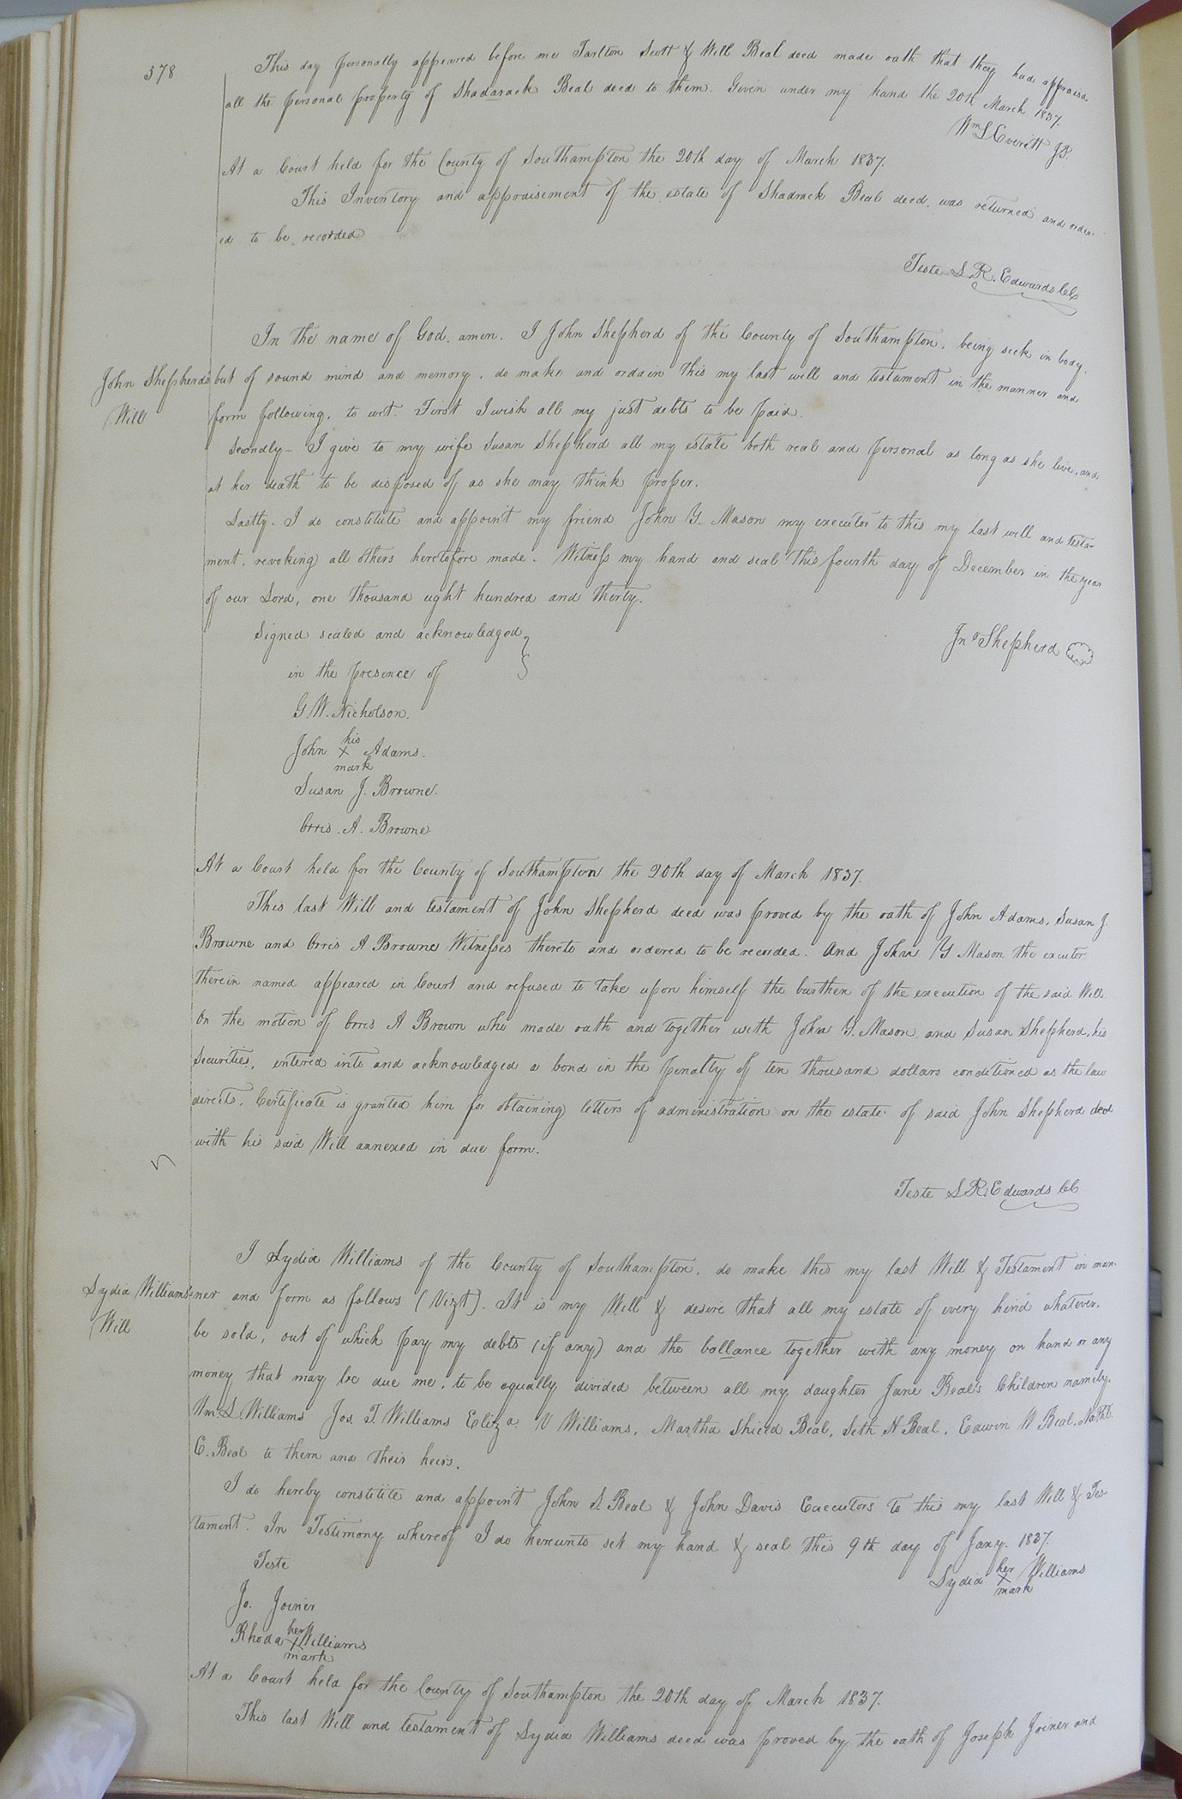 378
This day personally appeared before me Tarlton Scott & Will Beal decd made oath that they had appraisd
all the personal property of Shadarack Beal decd to them. Given under my hand the 20th March 1837.
Wm L Everitt J.P.
At a Court held for the County of Southampton the 20th day of March 1837.
This Inventory and appraisement of the estate of Shadrack Beal decd. was returned and order-
ed to be recorded
Teste L. R. Edwards CC
In the name of God, amen. I John Shepherd of the County of Southampton, being seek in body,
John Shepherds
Will
but of sound mind and memory, do make and ordain this my last will and testament in the manner and
form following, to wit. First I wish all my just debts to be paid.
Secondly - I give to my wife Susan Shepherd all my estate both real and personal as long as she live, and
at her death to be disposed of as she may think proper.
Lastly. I do constitute and appoint my friend John Y. Mason my executor to this my last will and testa-
ment, revoking all others heretofore made. Witness my hand and seal this fourth day of December in the year
of our Lord, one thousand eight hundred and thirty.
Signed sealed and acknowledged
in the presence of
Jno Shepherd
G. W. Nicholson.
John his x mark Adams.
Susan J. Browne.
A. Browne
At a Court held for the County of Southampton the 20th day of March 1837.
This last Will and testament of John Shepherd decd was proved by the oath of John Adams, Susan J.
Browne and A Browne Witnesses thereto and ordered to be recorded. And John Y Mason the excutor
therein named appeared in Court and refused to take upon himself the burthen of the execution of the said Will.
On the motion of A Brown who made oath and together with John Y. Mason and Susan Shepherd, his
Securities, entered into and acknowledged a bond in the penalty of ten thousand dollars conditioned as the law
directs, Certificate is granted him for obtaining letters of administration on the estate of said John Shepherd decd
with his said Will annexed in due form.
Teste L. R. Edwards CC
I Lydia Williams of the County of Southampton, do make this my last Will & Testament in man-
Lydia Williams
Will
ner and form as follows (Vizt). It is my Will & desire that all my estate of every kind whatever,
be sold, out of which pay my debts (if any) and the ballance together with any money on hand or any
money that may be due me, to be equally divided between all my daughter Jane Beal's Children namely,
Wm L Williams Jos. T. Williams Eliza V Williams, Martha Beal, Seth H Beal, Edwin W Beal,
E. Beal to them and their heirs.
I do hereby constitute and appoint John Beal & John Davis Executors to this my last Will & Tes-
tament. In Testimony whereof I do hereunto set my hand & seal this 9th day of Jany. 1837.
Teste
Lydia her x mark Williams
Jo. Joiner
Rhoda her x mark Williams
At a Court held for the County of Southampton the 20th day of March 1837.
This last Will and testament of Lydia Williams decd was proved by the oath of Joseph Joiner and